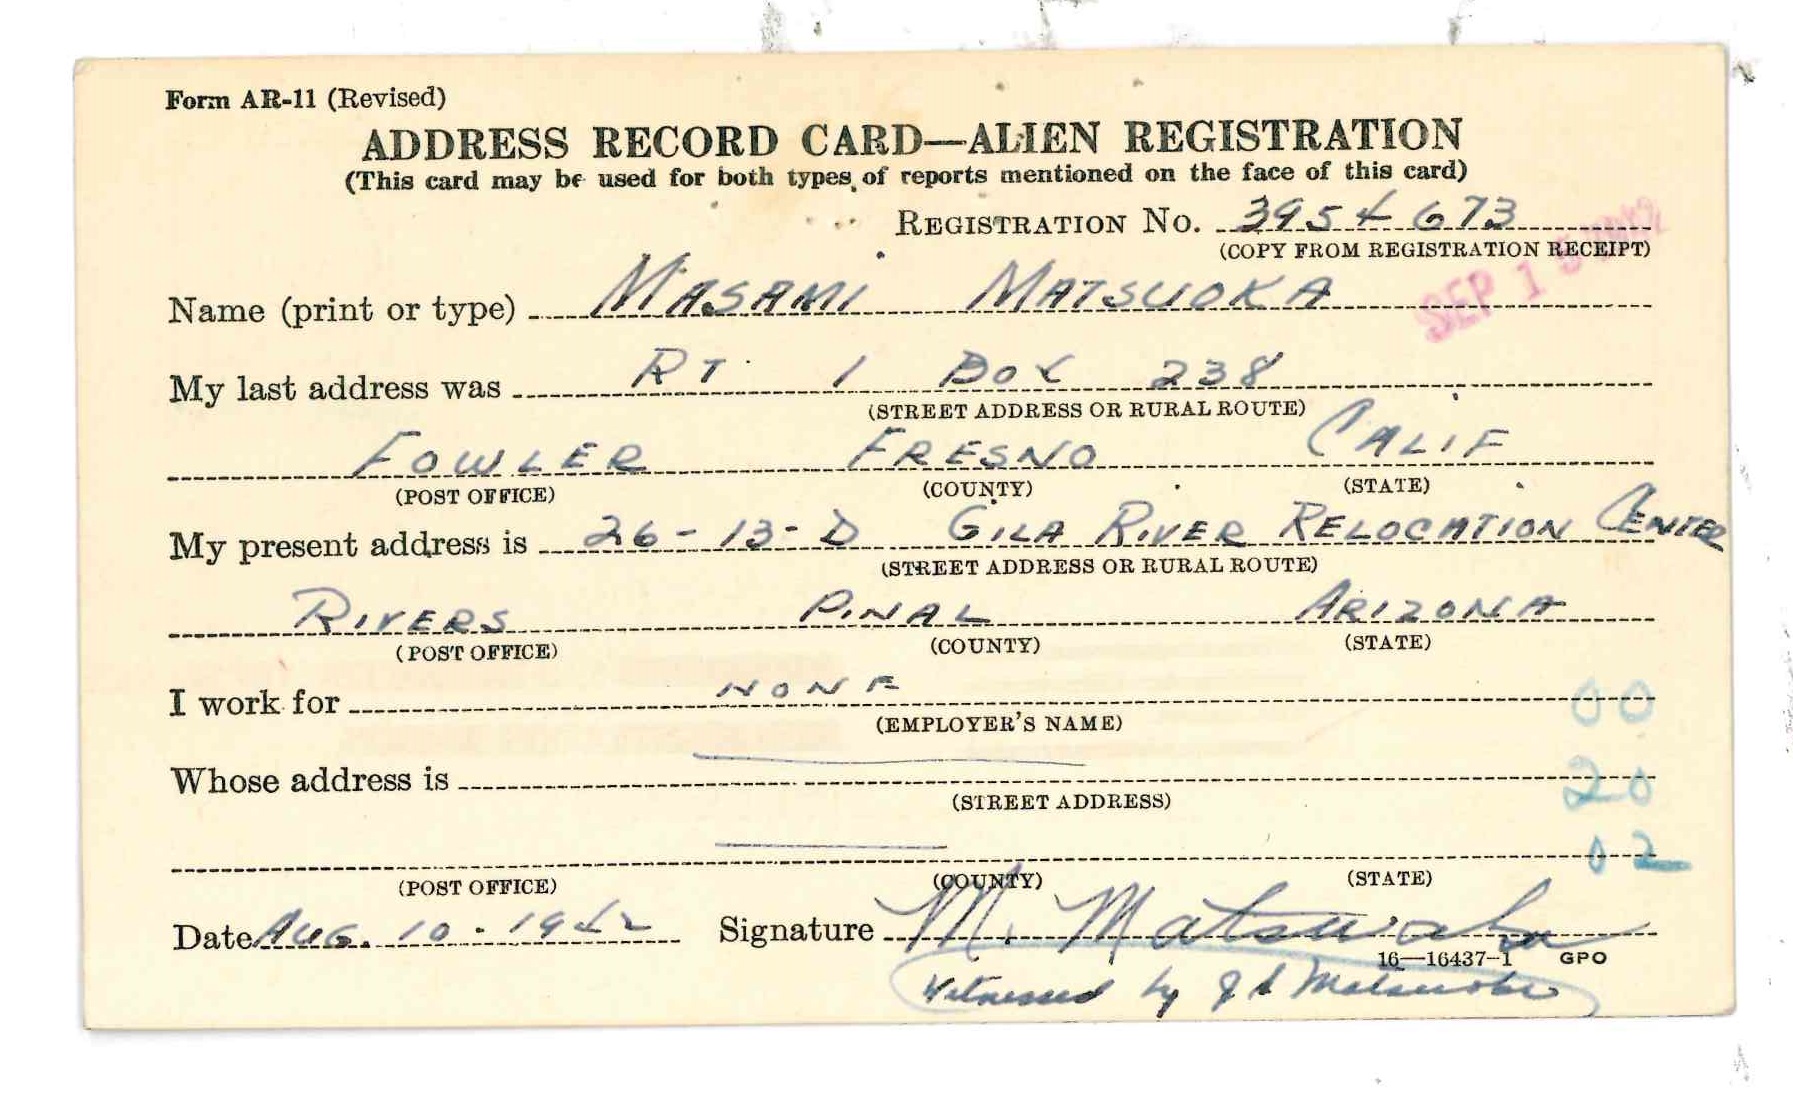 Form AR-11 (Revised)
ADDRESS RECORD CARD—ALIEN REGISTRATION
(This card may be used for both types of reports mentioned on the face of this card)
REGISTRATION No. 3954673
(COPY FROM REGISTRATION RECEIPT)
SEP 15 1942
Name (print or type) MASAMI MATSUOKA
My last address was RT 1 BOX 238
(STREET ADDRESS OR RURAL ROUTE)
FOWLER FRESNO CALIF
(POST OFFICE) (COUNTY) (STATE)
My present address is 26-13-D GILA RIVER RELOCATION CENTER
(STREET ADDRESS OR RURAL ROUTE)
RIVERS PINAL ARIZONA
(POST OFFICE) (COUNTY) (STATE)
I work for NONE
(EMPLOYER'S NAME)
00
Whose address is
20
(STREET ADDRESS)
02
(POST OFFICE) (COUNTY) (STATE)
Date AUG. 10 - 1942 Signature M. Matsuoka
16—16437-1 GPO
Witnessed by